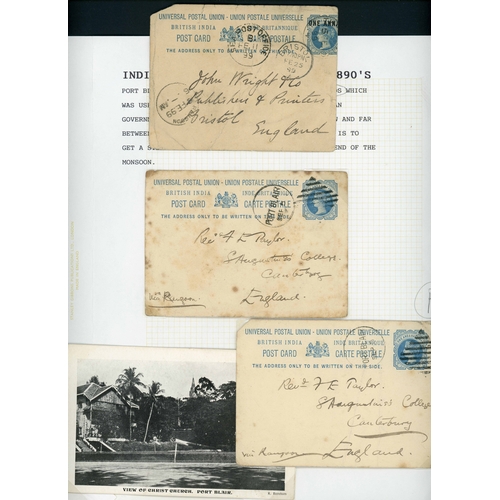 INDI 890'S
PORT BL DS WHICH
WAS US AN
GOVERN N AND FAR
BETWEE IS TO
GET A S END OF THE
MONSOON.
UNIVERSAL POSTAL UNION - UNION POSTALE UNIVERSELLE
BRITISH INDIA INDE BRITANNIQUE
POST CARD CARTE POSTALE
THE ADDRESS ONLY TO BE
ONE ANN
BRISTOL
FE 25
99
John Wright & Co
Publishers & Printers
Bristol
England
UNIVERSAL POSTAL UNION - UNION POSTALE UNIVERSELLE
BRITISH INDIA INDE BRITANNIQUE
POST CARD CARTE POSTALE
THE ADDRESS ONLY TO BE WRITTEN ON THIS SIDE.
PORT BLAIR
Rev F E Taylor.
S Augustine's College
Canterbury
via Rangoon England.
UNIVERSAL POSTAL UNION - UNION POSTALE UNIVERSELLE
BRITISH INDIA INDE BRITANNIQUE
POST CARD CARTE POSTALE
THE ADDRESS ONLY TO BE WRITTEN ON THIS SIDE.
Revd F E Taylor.
S Augustine's College
Canterbury
via Rangoon England
VIEW OF CHRIST CHURCH. PORT BLAIR.